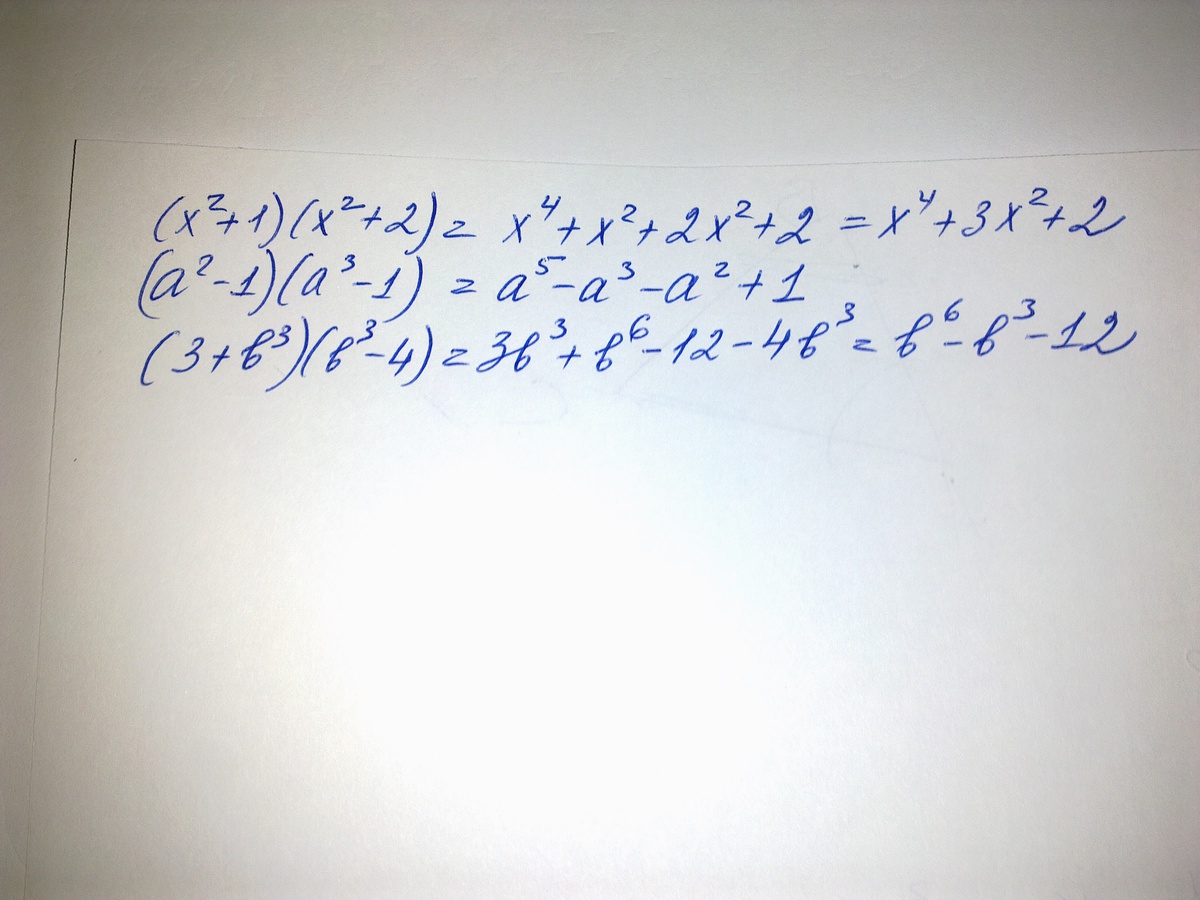 (x²+1)(x²+2)= x⁴+x²+2x²+2 =x⁴+3x²+2
(a²-1)(a³-1) = a⁵-a³-a²+1
(3+b³)(b³-4)=3b³+b⁶-12-4b³=b⁶-b³-12